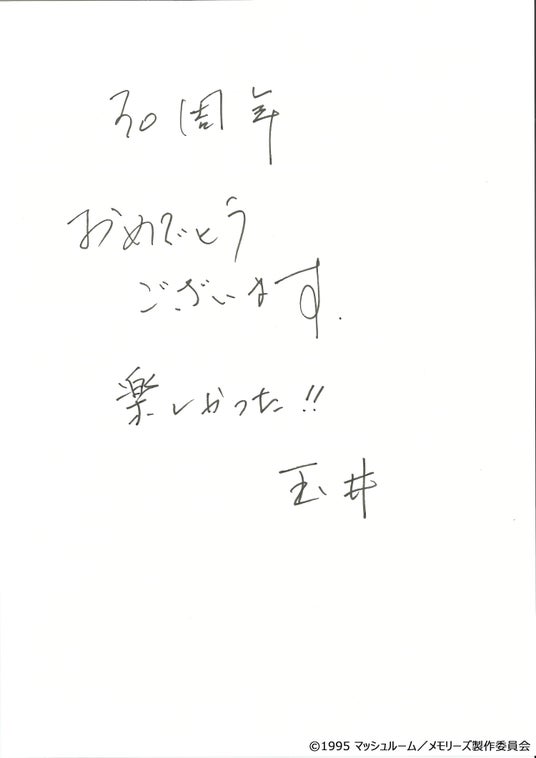 30周年
おめでとう
ございます.
楽しかった!!
玉井
©1995 マッシュルーム／メモリーズ製作委員会